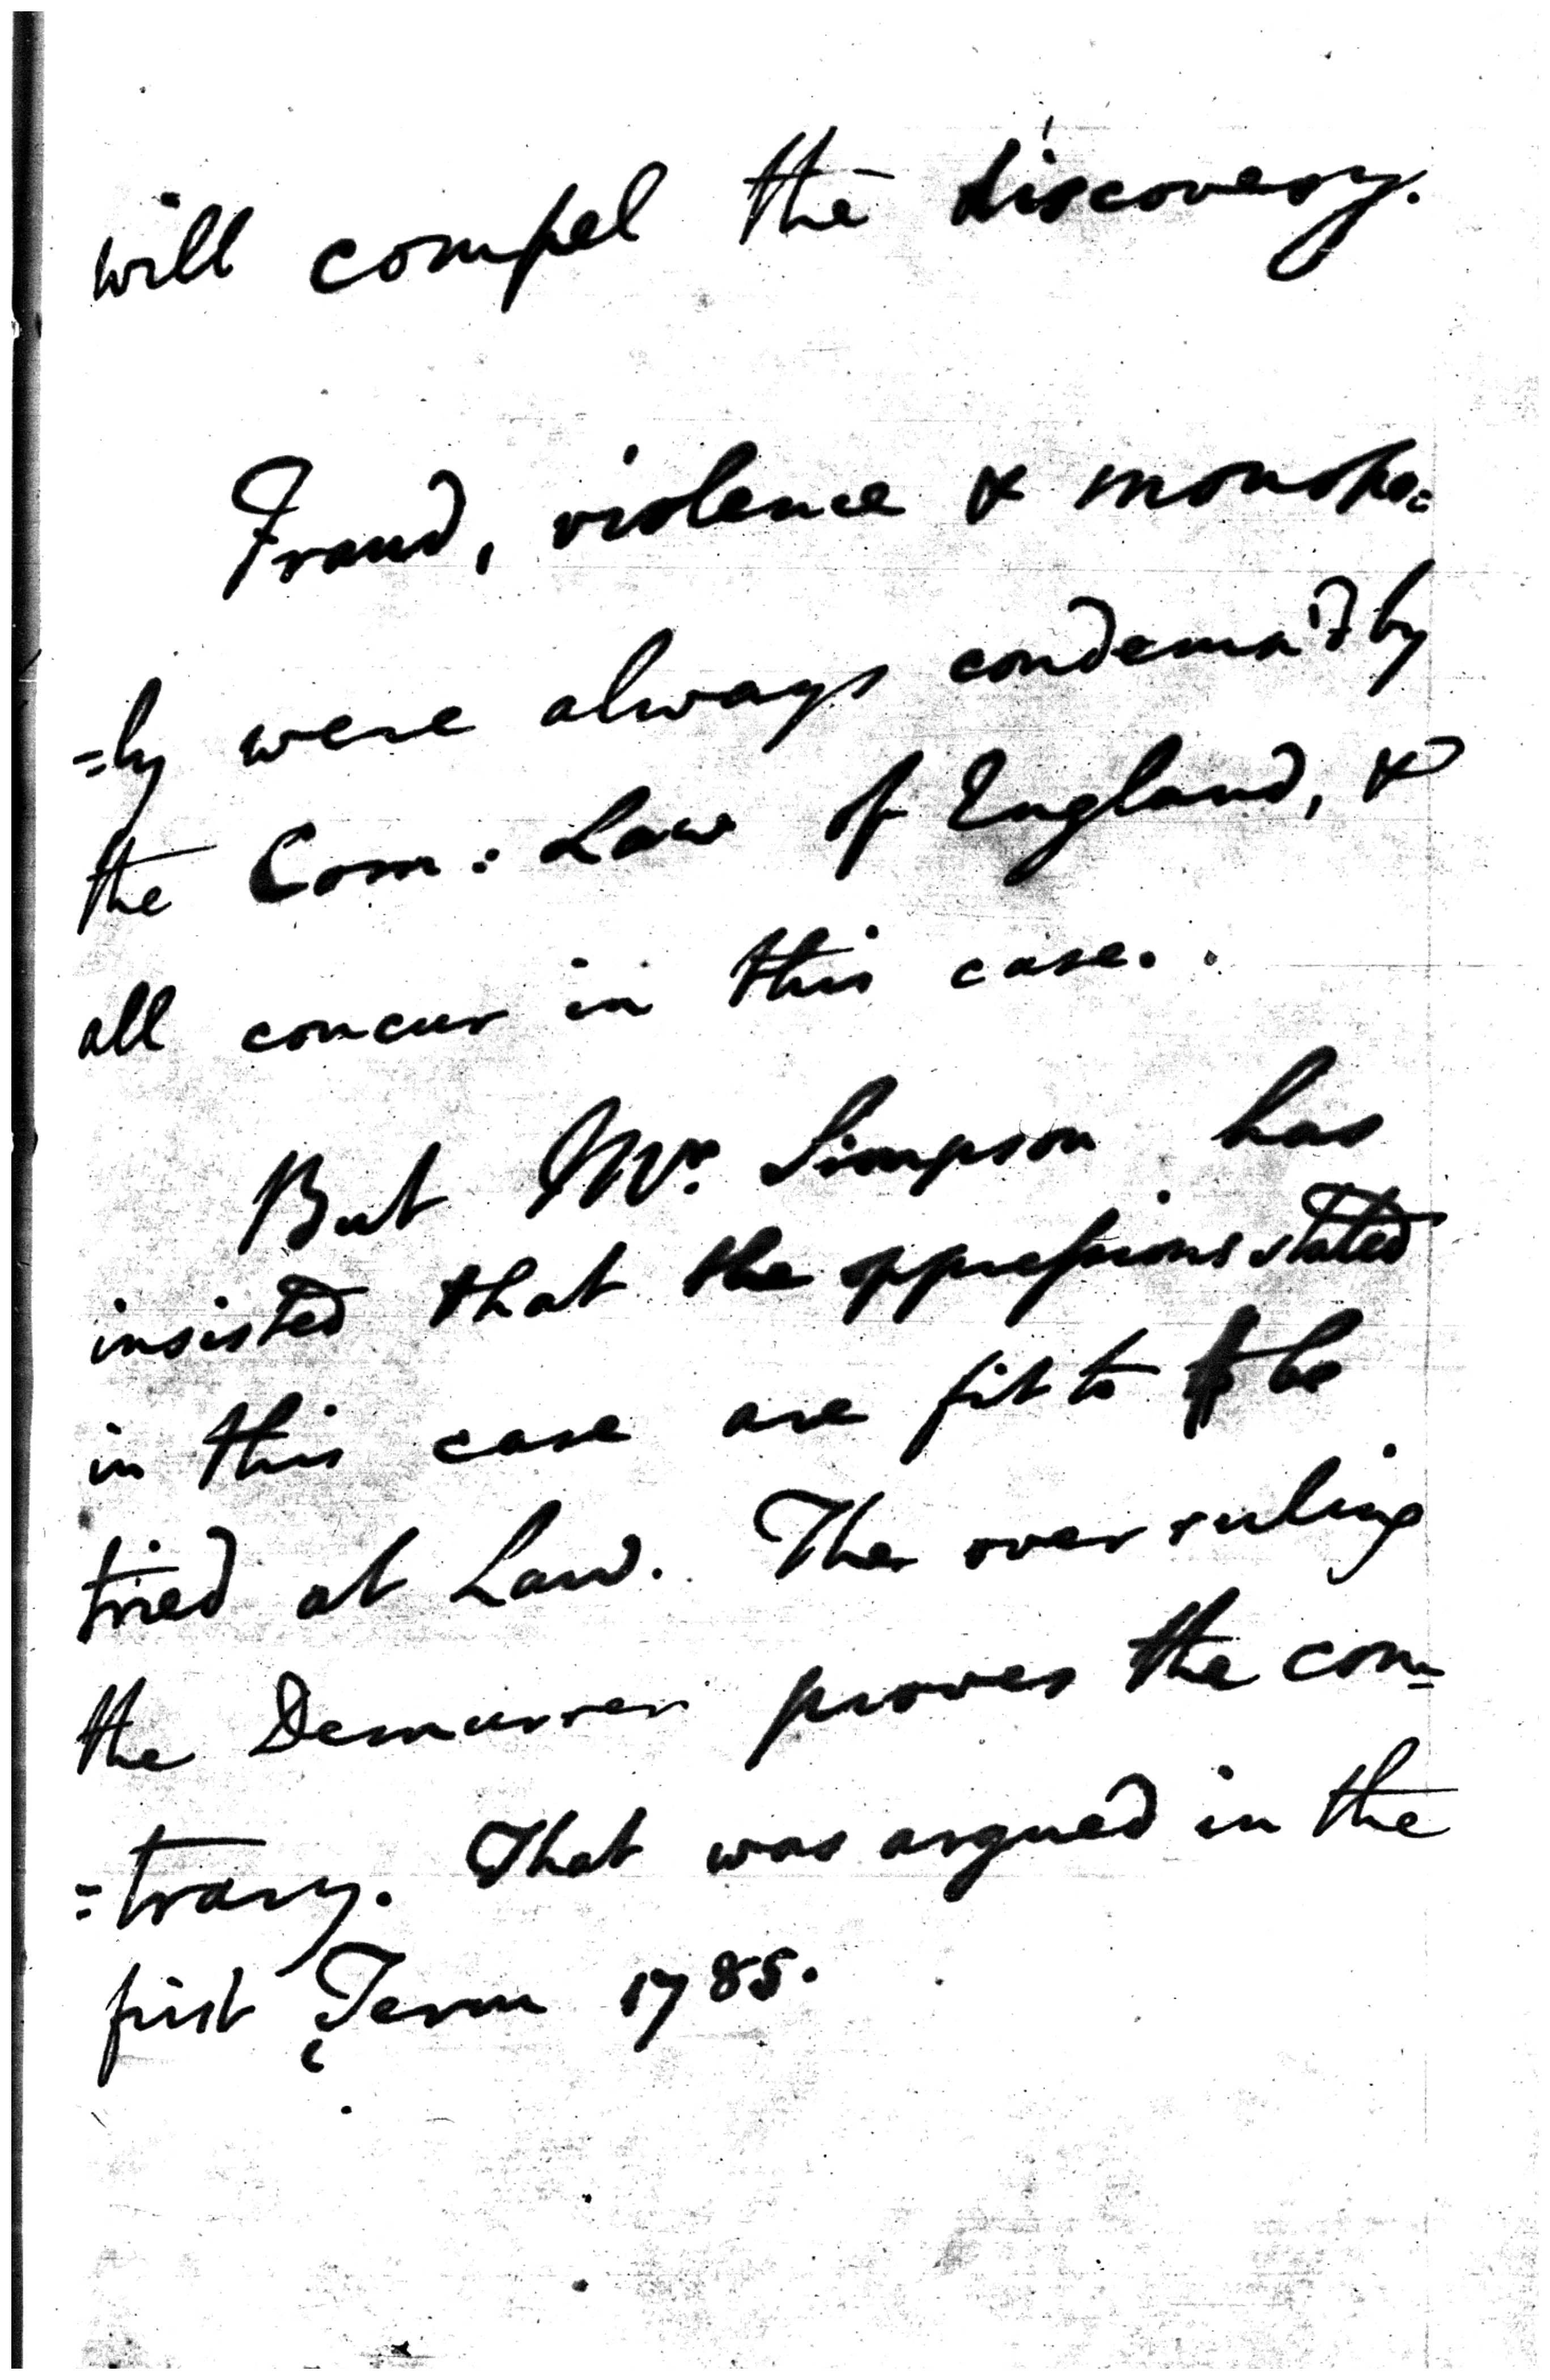 will compel the discovery.
Fraud, violence & monopo=
=ly were always condemn'd by
the Com: Law of England, &
all concur in this case.
But Mr. Simpson has
insisted that the oppressions stated
in this case are fit to be
tried at Law. The over ruling
the Demurrer proves the con=
=trary. That was argued in the
first Term 1785.